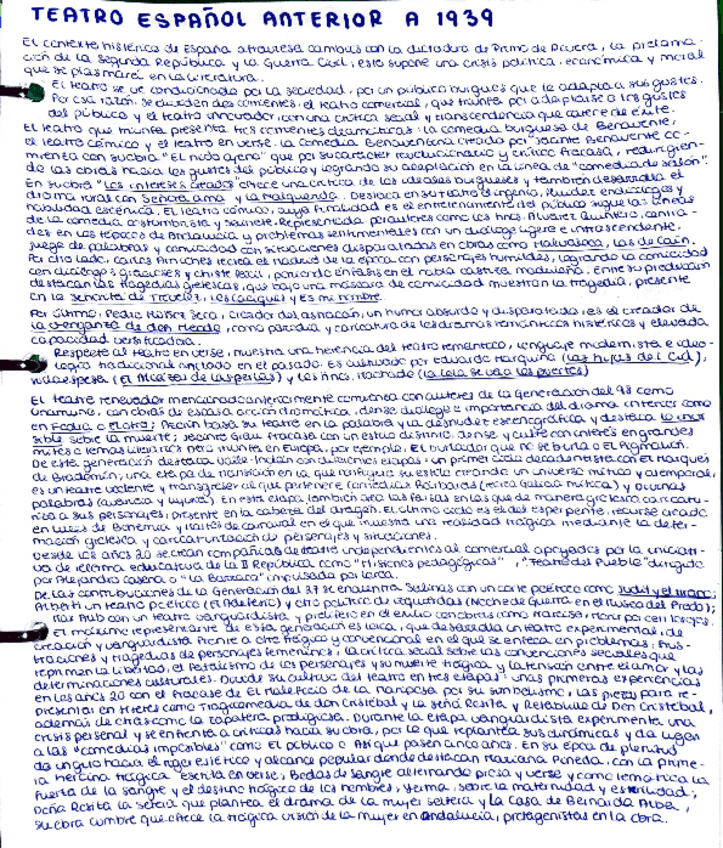 TEATRO ESPAÑOL ANTERIOR A 1939
El contexto histórico de España atraviesa cambios con la dictadura de Primo de Rivera, la proclama-
ción de la Segunda República y la Guerra Civil; esto supone una crisis política, económica y moral
que se plasmará en la literatura.
El teatro se ve condicionado por la sociedad, por un público burgués que lo adapta a sus gustos.
Por esa razón, se dividen dos corrientes: el teatro comercial, que triunfa por adaptarse a los gustos
del público y el teatro innovador, con una crítica social y transcendencia que carece de éxito.
El teatro que triunfa presenta tres corrientes dramáticas: la comedia burguesa de Benavente,
el teatro cómico y el teatro en verso. La comedia Benaventina creada por Jacinto Benavente co-
mienza con su obra "El nido ajeno" que por su carácter revolucionario y crítico fracasa, redirigien-
do las obras hacia los gustos del público y logrando su adaptación en la línea de "comedia de salón".
En su obra "Los intereses creados" ofrece una crítica de los ideales burgueses y también desarrolla el
drama rural con Señora ama y La Malquerida. Destaca en su teatro el ingenio, fluidez en diálogos y
habilidad escénica. El teatro cómico, cuya finalidad es el entretenimiento del público sigue las líneas
de la comedia costumbrista y sainete. Representada por autores como los hnos. Álvarez Quintero, centra-
dos en los tópicos de Andalucía y problemas sentimentales con un diálogo ligero e intrascendente,
juego de palabras y comicidad con situaciones disparatadas en obras como Malvaloca, Las de Caín.
Por otro lado, Carlos Arniches recrea el Madrid de la época con personajes humildes, logrando la comicidad
con diálogos graciosos y chiste fácil, poniendo énfasis en el habla castiza madrileña. Entre su producción
destacan las tragedias grotescas, que bajo una máscara de comicidad muestran la tragedia, presente
en La señorita de Trevelez, Los caciques y Es mi hombre.
Por último, Pedro Muñoz Seca, creador del astracán, un humor absurdo y disparatado, es el creador de
La venganza de don Mendo, como parodia y caricatura de los dramas románticos históricos y elevada
capacidad versificadora.
Respecto al teatro en verso, muestra una herencia del teatro romántico, lenguaje modernista e ideo-
logía tradicional anclado en el pasado. Es cultivado por Eduardo Marquina (Las hijas del Cid),
Villaespesa (El Alcázar de las perlas) y los hnos. Machado (La Lola se va a los puertos)
El teatro renovador mencionado anteriormente comienza con autores de la Generación del 98 como
Unamuno, con obras de escasa acción dramática, denso diálogo e importancia del drama interior como
en Fedra o El otro; Azorín basa su teatro en la palabra y la desnudez escenográfica y destaca Lo invi-
sible sobre la muerte; Jacinto Grau fracasa con un estilo distinto, denso y culto con interés en grandes
mitos o temas literarios pero triunfa en Europa, por ejemplo, El burlador que no se burla o El Pigmalión.
De esta generación destaca Valle-Inclán con diferentes etapas: un primer ciclo decadentista con El Marqués
de Bradomín; una etapa de transición en la que configura su estilo creando un universo mítico y atemporal,
es un teatro violento y transgresor al que pertenece Comedias Bárbaras (recrea Galicia mítica) y Divinas
palabras (avaricia y lujuria). En esta etapa también crea las farsas en las que de manera grotesca caricatu-
riza a sus personajes, presente en La cabeza del dragón. El último ciclo es el del esperpento, recurso creado
en Luces de Bohemia y Martes de carnaval en el que muestra una realidad trágica mediante la defor-
mación grotesca y caricaturización de personajes y situaciones.
Desde los años 20 se crean compañías de teatro independientes al comercial apoyadas por la iniciati-
va de reforma educativa de la II República como "Misiones pedagógicas", "Teatro del Pueblo" dirigido
por Alejandro Casona o "La Barraca" impulsada por Lorca.
De las contribuciones de la Generación del 27 se encuentra Salinas con un corte poético como Judit y el tirano;
Alberti un teatro poético (El Adefesio) y otro político de izquierdas (Noche de Guerra en el Museo del Prado);
Max Aub con un teatro vanguardista, y prolífero en el exilio con obras como Narciso, Morir por cerrar los ojos.
El máximo representante de esta generación es Lorca, que desarrolla un teatro experimental, de
creación y vanguardista frente a otro trágico y convencional en el que se enfoca en problemas, frus-
traciones y tragedias de personajes femeninos, la crítica social sobre las convenciones sociales que
reprimen la libertad, el fatalismo de los personajes y su muerte trágica y la tensión entre el amor y las
determinaciones culturales. Divide su cultivo del teatro en tres etapas: unas primeras experiencias
en los años 20 con el fracaso de El Maleficio de la mariposa por su simbolismo, las piezas para re-
presentar en títeres como Tragicomedia de don Cristóbal y la señá Rosita y Retablillo de Don Cristóbal,
además de otras como La zapatera prodigiosa. Durante la etapa vanguardista experimenta una
crisis personal y se enfrenta a críticas hacia su obra, por lo que replantea sus dinámicas y da lugar
a las "comedias imposibles" como El público o Así que pasen cinco años. En su época de plenitud
da un giro hacia el rigor estético y alcance popular donde destacan Mariana Pineda, con la prime-
ra heroína trágica escrita en verso; Bodas de sangre alternando prosa y verso y como temática la
fuerza de la sangre y el destino trágico de los hombres; Yerma, sobre la maternidad y esterilidad;
Doña Rosita la soltera que plantea el drama de la mujer soltera y La Casa de Bernarda Alba,
su obra cumbre que ofrece la trágica visión de la mujer en Andalucía, protagonistas en la obra.